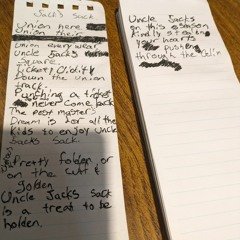 Jack's Sack
Union Here
Union Their
Union every wear
Uncle Jacks
Square.
Lickety Oldity
Down the Union
track.
Punching a ticket
never come back
The pest master
Dream is for all the
kids to enjoy uncle
Jacks Sack
Pretty folden or
on the cutt &
golden
Uncle Jacks Sack
is a treat to be
holden.
Uncle Jacks
on this
kindly
your hearts
pushen
through the